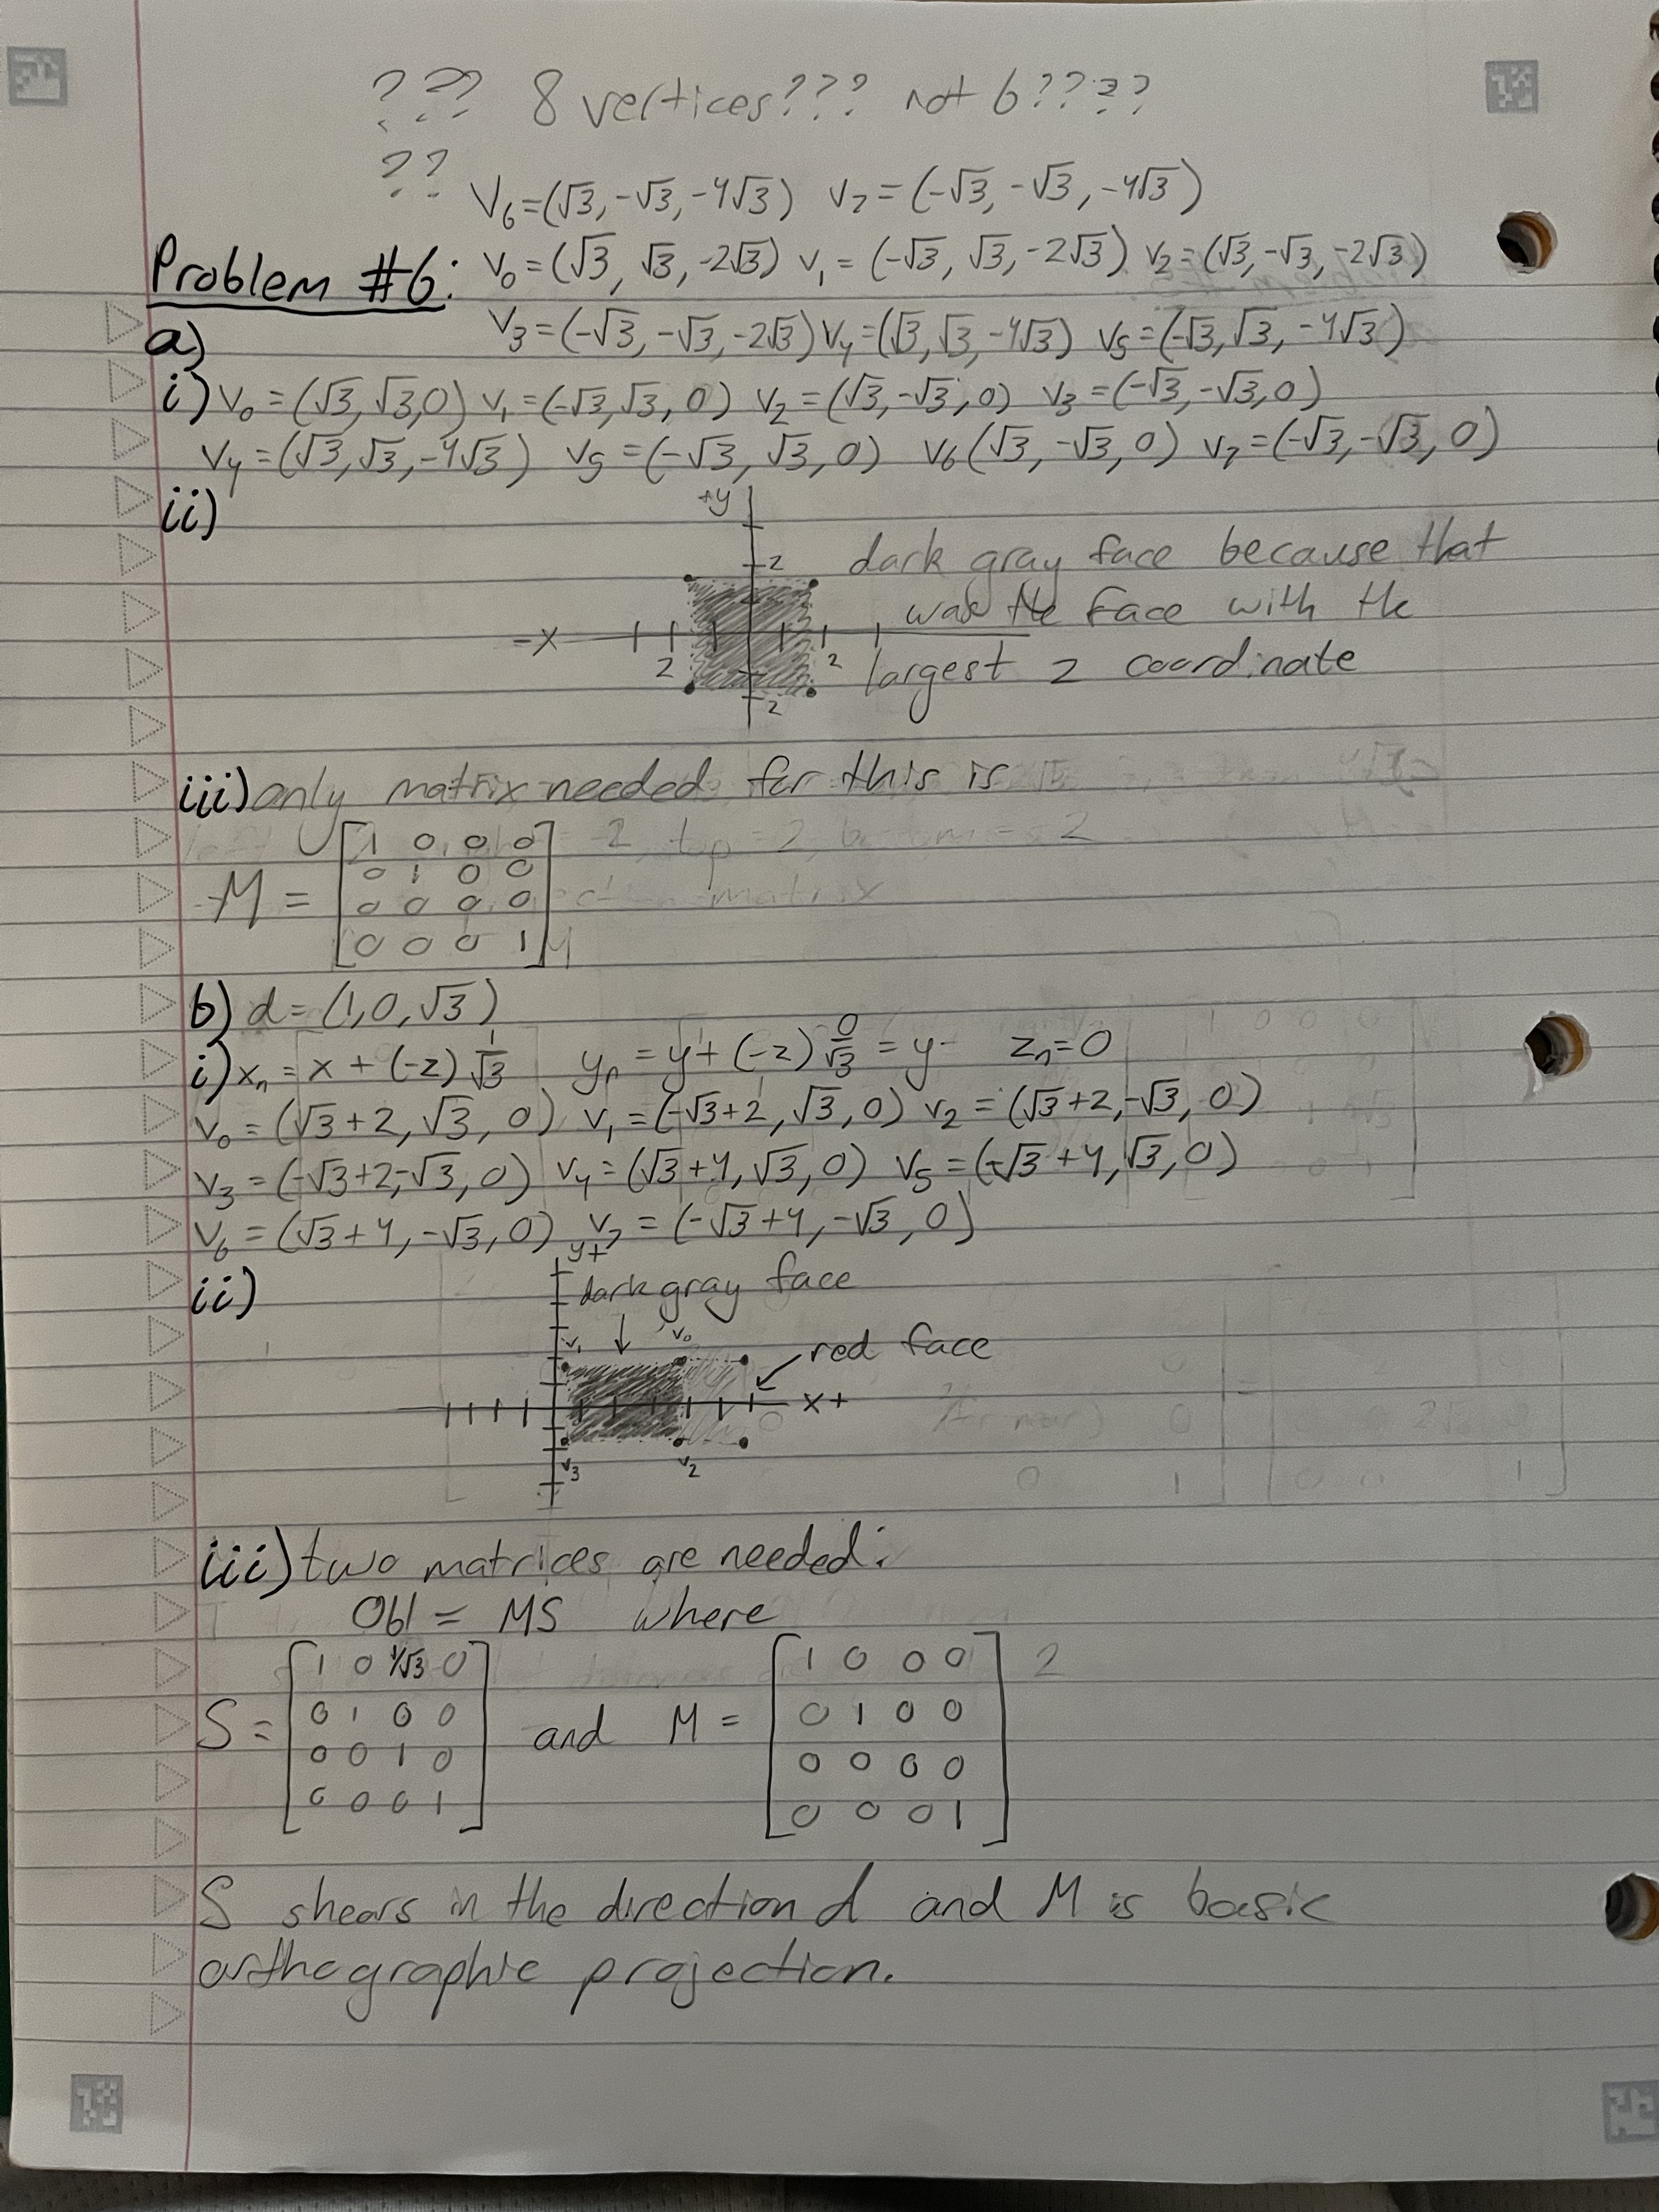 ??? 8 vertices??? not 6????
??
V₆=(√3,-√3,-4√3) V₇=(-√3,-√3,-4√3)
Problem #6: V₀=(√3, √3,-2√3) V₁=(-√3, √3,-2√3) V₂=(√3,-√3,-2√3)
a) V₃=(-√3,-√3,-2√3) V₄=(√3,√3,-4√3) V₅=(-√3,√3,-4√3)
i) V₀=(√3,√3,0) V₁=(-√3,√3,0) V₂=(√3,-√3,0) V₃=(-√3,-√3,0)
V₄=(√3,√3,-4√3) V₅=(-√3,√3,0) V₆(√3,-√3,0) V₇=(-√3,-√3,0)
ii) +y
2 dark gray face because that
was the face with the
-x 2 2 largest z coordinate
2
iii) only matrix needed for this is
M = [1 0 0 0
0 1 0 0
0 0 0 0
0 0 0 1]
b) d=(1,0,√3)
i) xₙ = x + (-z) 1/√3 yₙ = y + (-z) 0/√3 = y zₙ=0
V₀=(√3+2,√3,0) V₁=(-√3+2,√3,0) V₂=(√3+2,-√3,0)
V₃=(-√3+2,-√3,0) V₄=(√3+4,√3,0) V₅=(-√3+4,√3,0)
V₆=(√3+4,-√3,0) V₇=(-√3+4,-√3,0)
ii) y+
dark gray face
V₁ V₀ red face
x+
V₃ V₂
iii) two matrices are needed:
Obl = MS where
S = [1 0 1/√3 0
0 1 0 0
0 0 1 0
0 0 0 1] and M = [1 0 0 0
0 1 0 0
0 0 0 0
0 0 0 1]
S shears in the direction d and M is basic
orthographic projection.